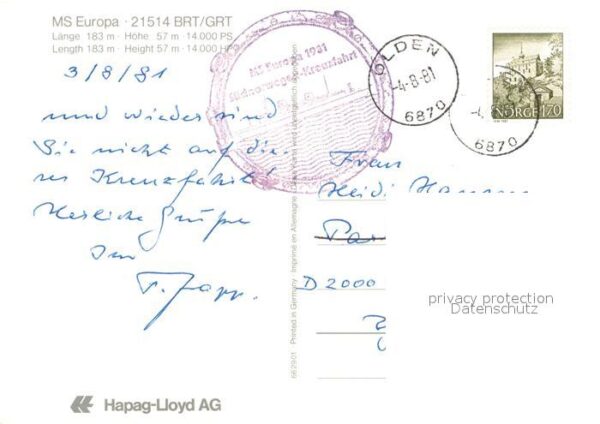 MS Europa · 21514 BRT/GRT
Länge 183 m · Höhe 57 m · 14.000 PS
Length 183 m · Height 57 m · 14.000 HP
3/8/81
und wieder sind
Sie nicht auf die-
ser Kreuzfahrt!
Herzliche Grüße
Ihr
MS Europa 1981
Südnorwegen-Kreuzfahrt
OLDEN
-4-8-81
6870
6870
NORGE 170
Frau
Heidi
D 2000
privacy protection
Datenschutz
Printed in Germany Imprimé en Allemagne
662901
Hapag-Lloyd AG